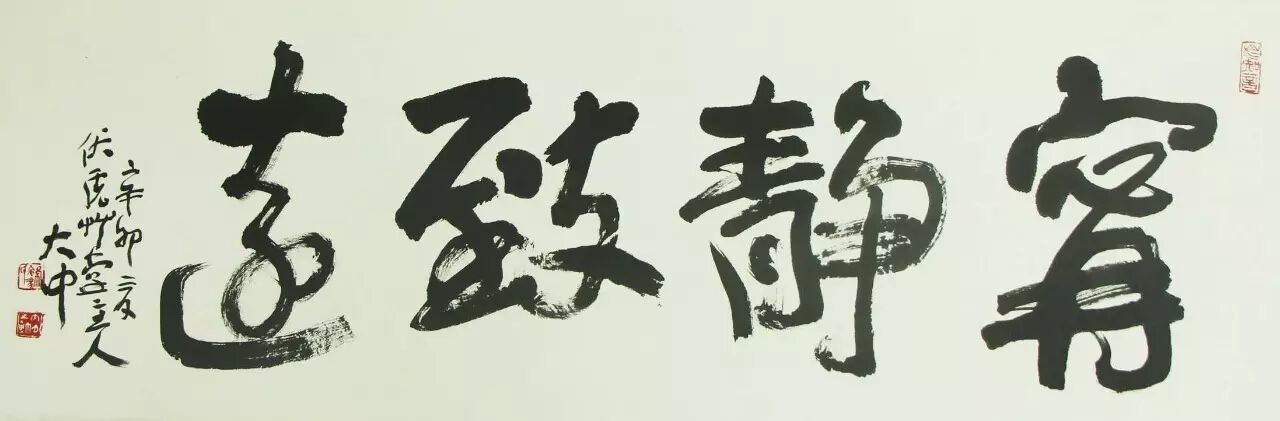 甯静致遠
辛卯
伏虎艸堂主人
大中